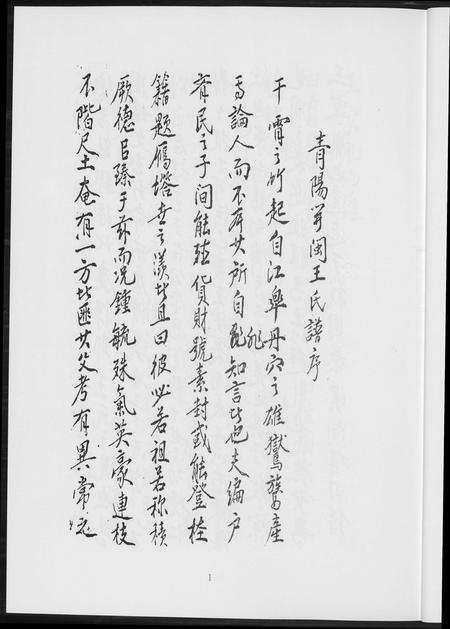 青陽開閩王氏譜序
干霄之竹起自江皋丹穴之雄鸑鷟產
焉論人而不存其所自非知言者也夫編戶
齊民之子间能殖貨財號素封或能登桂
籍題雁塔世之羡者且曰彼必若祖若祢積
厥德以臻于兹而况鍾毓殊氣英豪連枝
不階尺土奄有一方者匪其父考有異常
1